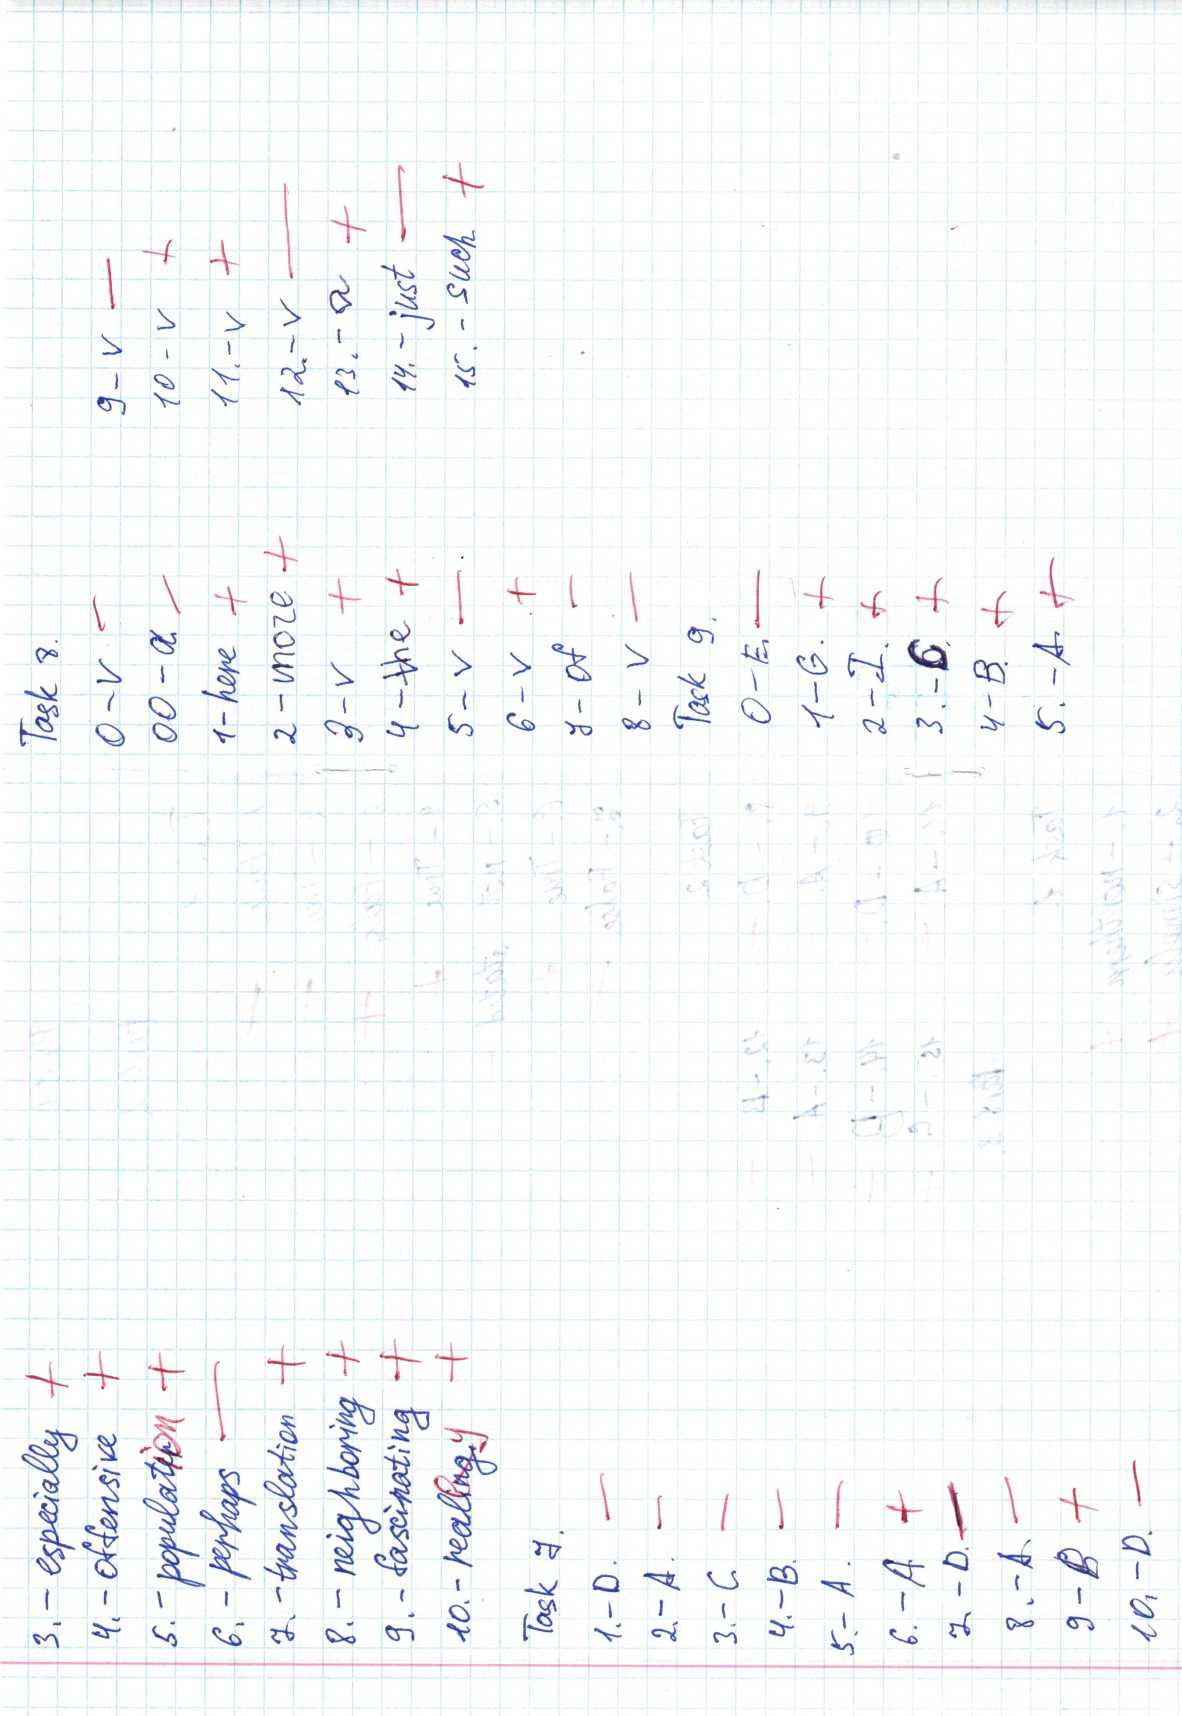 3.- especially +
4.- offensive +
5.- population +
6.- perhaps —
7.- translation +
8.- neighboring +
9.- fascinating +
10.- really +
Task 7.
1.- D. —
2.- A. —
3.- C —
4.- B. —
5.- A. —
6.- A +
7- D. —
8.- A. —
9- B +
10.- D. —
Task 8.
0-v —
00-a. —
1-here +
2-more +
3-v +
4-the +
5-v —
6-v +
7-of —
8-v —
Task 9.
0-E. —
1-G. +
2-I. +
3.- +
4-B. +
5.-A. +
9-v —
10-v +
11.-v +
12.-v —
13.-a +
14.-just —
15.-such +